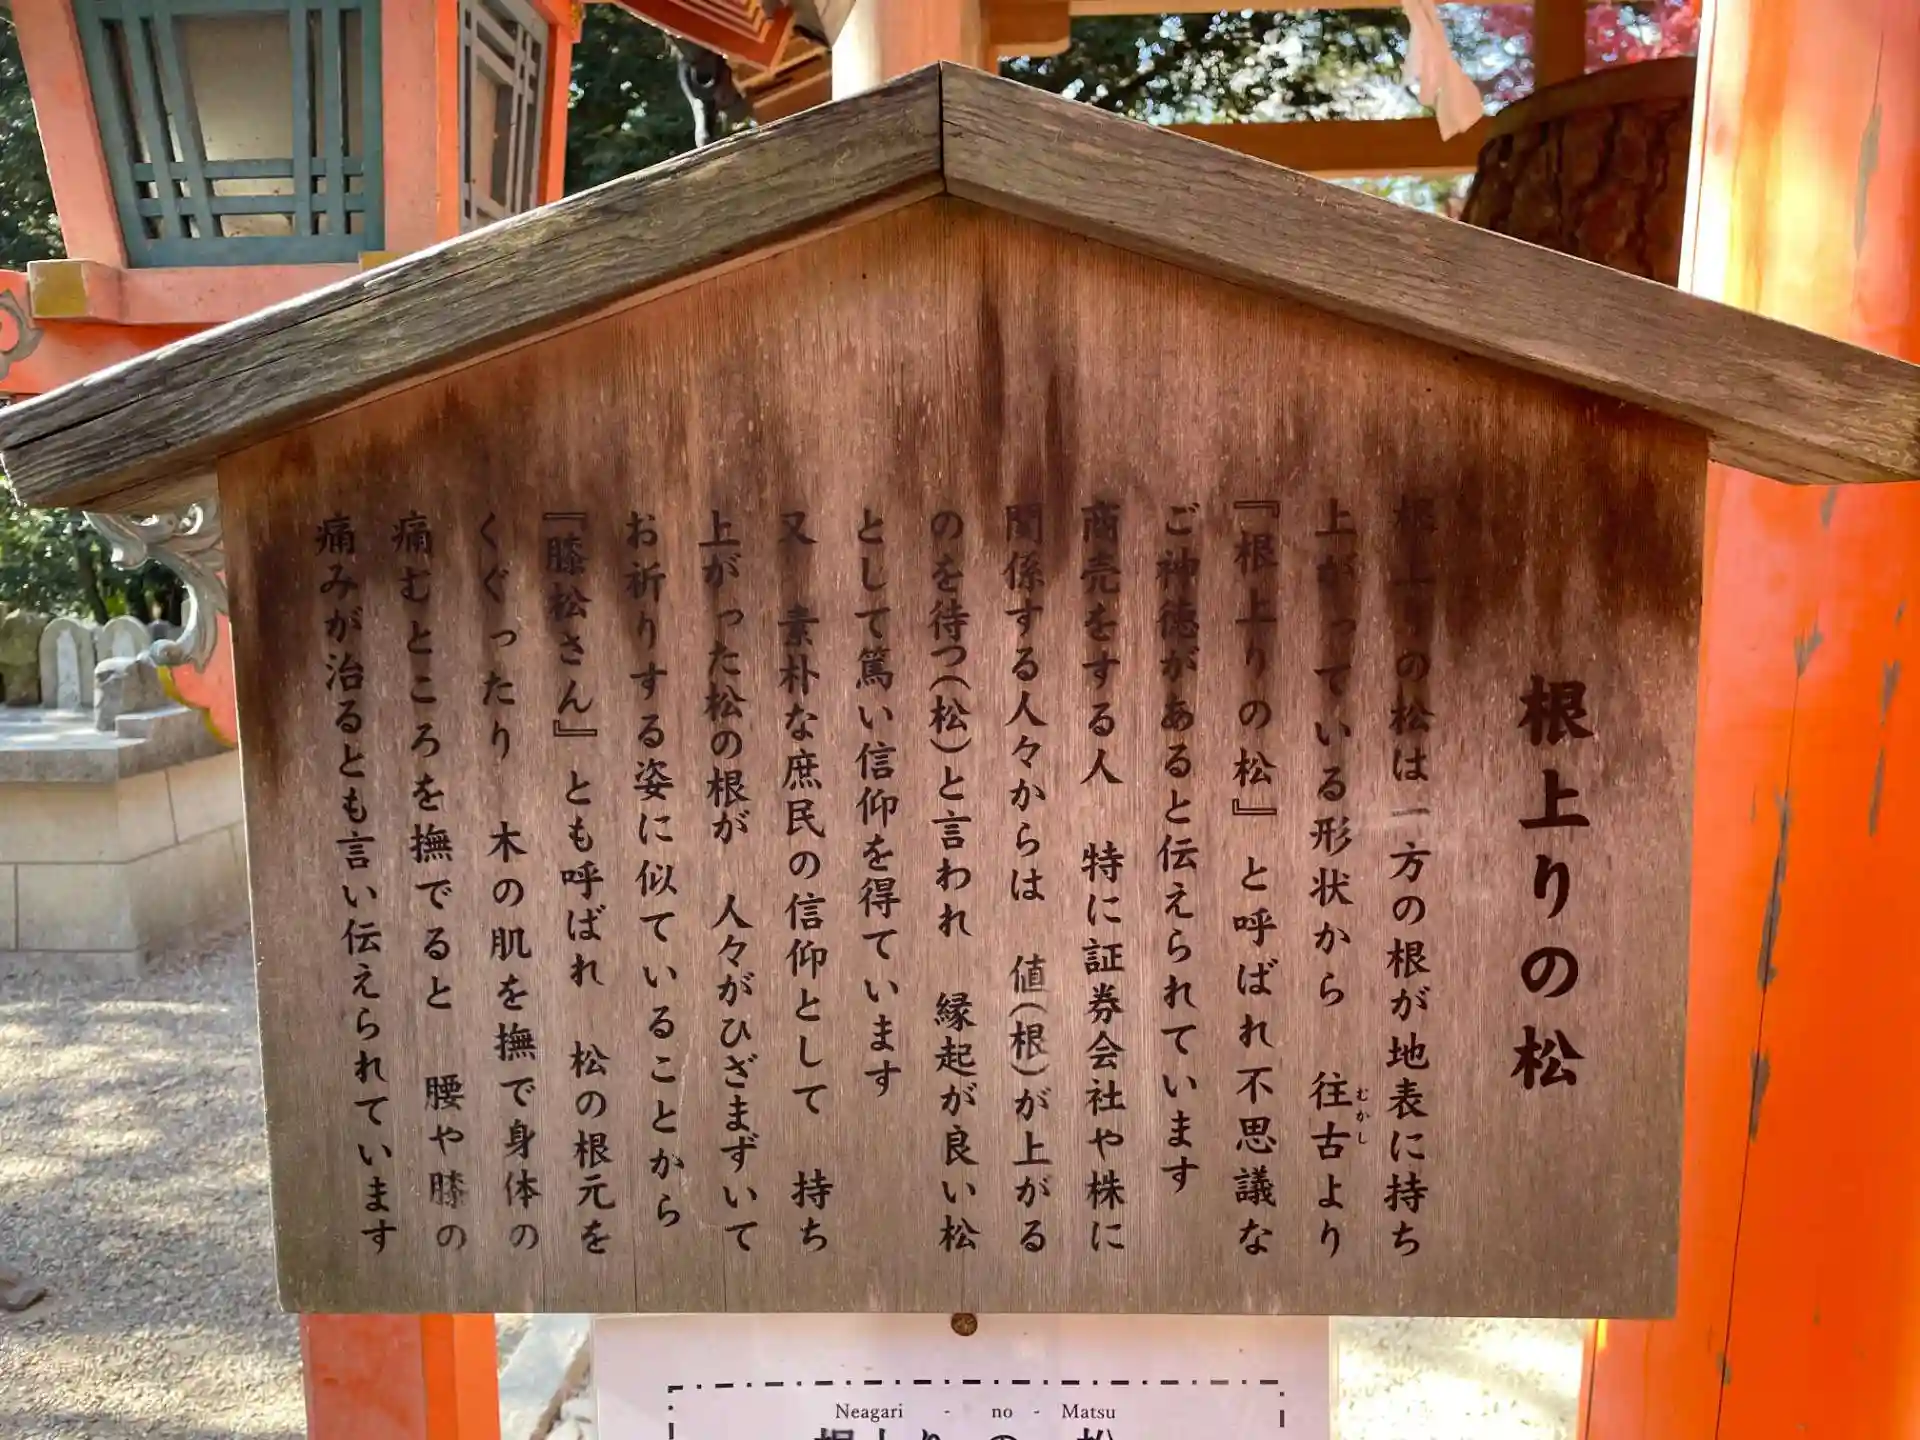 根上りの松
根上りの松は一方の根が地表に持ち
上がっている形状から　往古より
むかし
『根上りの松』と呼ばれ不思議な
ご神徳があると伝えられています
商売をする人　特に証券会社や株に
関係する人々からは　値(根)が上がる
のを待つ(松)と言われ　縁起が良い松
として篤い信仰を得ています
又　素朴な庶民の信仰として　持ち
上がった松の根が　人々がひざまずいて
お祈りする姿に似ていることから
『膝松さん』とも呼ばれ　松の根元を
くぐったり　木の肌を撫で身体の
痛むところを撫でると　腰や膝の
痛みが治るとも言い伝えられています
Neagari - no - Matsu
根上りの松